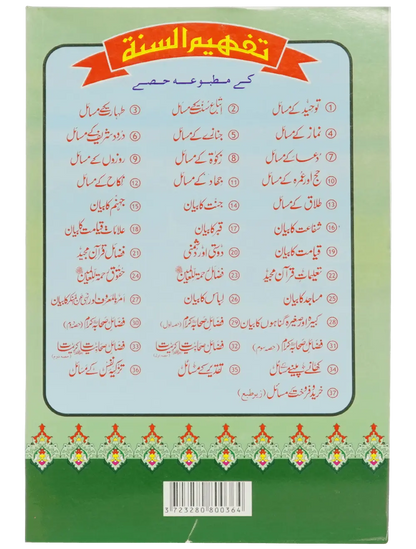 تفہیم السنۃ
کے مطبوعہ حصے
① توحید کے مسائل ② اتباع سنت کے مسائل ③ طہارت کے مسائل
④ نماز کے مسائل ⑤ جنازے کے مسائل ⑥ درود شریف کے مسائل
⑦ دعا کے مسائل ⑧ زکوٰۃ کے مسائل ⑨ روزوں کے مسائل
⑩ حج اور عمرہ کے مسائل ⑪ جہاد کے مسائل ⑫ نکاح کے مسائل
⑬ طلاق کے مسائل ⑭ جنت کا بیان ⑮ جہنم کا بیان
⑯ شفاعت کا بیان ⑰ قبر کا بیان ⑱ علامات قیامت کا بیان
⑲ قیامت کا بیان ⑳ دوستی اور دشمنی ㉑ فضائل قرآن مجید
㉒ تعلیمات قرآن مجید ㉓ فضائل رحمۃ للعالمین ㉔ حقوق رحمۃ للعالمین
㉕ مساجد کا بیان ㉖ لباس کا بیان ㉗ امر بالمعروف اور نہی عن المنکر کا بیان
㉘ کبیرہ اور صغیرہ گناہوں کا بیان ㉙ فضائل صحابہ کرام (حصہ اول) ㉚ فضائل صحابہ کرام (حصہ دوم)
㉛ فضائل صحابہ کرام (حصہ سوم) ㉜ فضائل صحابیات ㉝ فضائل صحابیات
㉞ کھانے پینے کے مسائل ㉟ تقدیر کے مسائل ㊱ تزکیہ نفس کے مسائل
㊲ خرید و فروخت کے مسائل (زیر طبع)
3 723280 800364